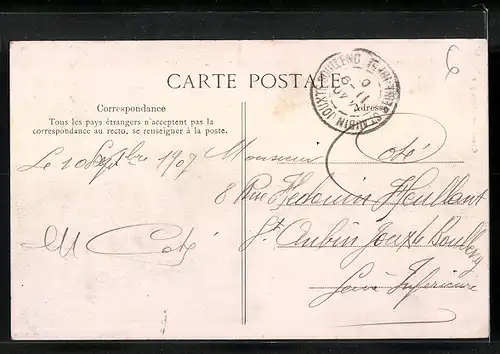 6
CARTE POSTALE
Correspondance
Tous les pays étrangers n'acceptent pas la
correspondance au recto, se renseigner à la poste.
Adresse
ST AUBIN JOUXTE BOULLENG
Le 1 Septbre 1907
Monsieur Coté
8 Rue
St Aubin Jouxte Boulleng
Seine Inferieure
M Coté